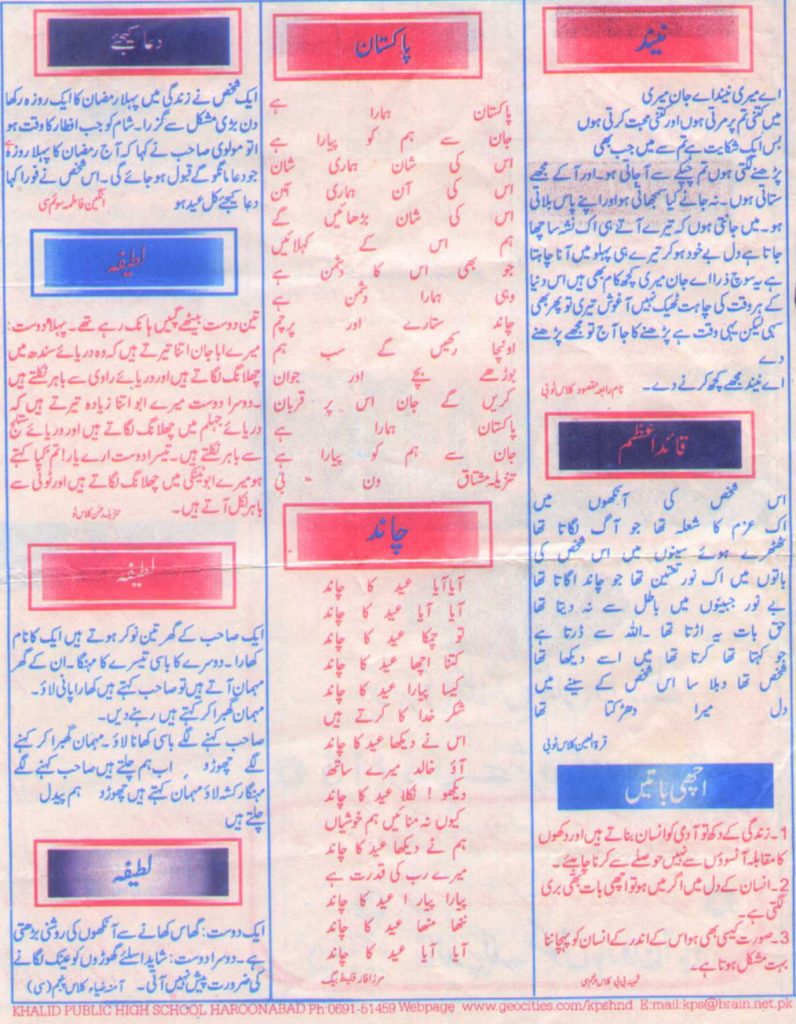 نیند
اے میری نیند اے جان میری
میں کتنی تم پر مرتی ہوں اور کتنی محبت کرتی ہوں
بس ایک شکایت ہے تم سے میں جب بھی
پڑھنے لگتی ہوں تم چپکے سے آ جاتی ہو۔ اور آ کے مجھے
ستاتی ہوں۔ نہ جانے کیا سمجھاتی ہو اور اپنے پاس بلاتی
ہو۔ میں جانتی ہوں کہ تیرے آتے ہی اک نشہ سا چھا
جاتا ہے دل بے خود ہو کر تیرے ہی پہلو میں آنا چاہتا
ہے یہ سوچ ذرا اے جان میری کچھ کام بھی ہیں اس دنیا
کے ہر وقت کی چاہت ٹھیک نہیں آغوش تیری تو پھر بھی
سہی لیکن یہی وقت ہے پڑھنے کا جا آج تو مجھے پڑھنے
دے
اے نیند مجھے کچھ کرنے دے۔
نام رابعہ مقصود کلاس نو بی
قائد اعظم
اس شخص کی آنکھوں میں
اک عزم کا شعلہ تھا جو آگ لگاتا تھا
ٹھٹھرے ہوئے سینوں میں اس شخص کی
باتوں میں اک نور تھا جو چاند اگاتا تھا
بے نور جبینوں میں باطل سے نہ دبتا تھا
حق بات پہ اڑتا تھا ۔ اللہ سے ڈرتا ہے
جو کہتا تھا کرتا تھا میں اسے دیکھا تھا
شخص تھا دبلا سا اس شخص کے سینے میں
دل میرا دھڑکتا تھا
قرۃ العین کلاس نو بی
اچھی باتیں
1۔ زندگی کے دکھ تو آدمی کو انسان بناتے ہیں اور دکھوں
کا مقابلہ آنسوؤں سے نہیں حوصلے سے کرنا چاہئے۔
2۔ انسان کے دل میں اگر میں ہو تو اچھی بات بھی بری
لگتی ہے۔
3۔ صورت کیسی بھی ہو اس کے اندر کے انسان کو پہچاننا
بہت مشکل ہوتا ہے۔
پاکستان
پاکستان ہمارا ہے
جان سے ہم کو پیارا ہے
اس کی شان ہماری شان
اس کی آن ہماری آن
اس کی شان بڑھائیں گے
ہم اس کے کہلائیں
جو بھی اس کا دشمن ہے
وہی ہمارا دشمن ہے
چاند ستارے اور پرچم
اونچا رکھیں گے سب ہم
بوڑھے بچے اور جوان
کریں گے جان اس پر قربان
پاکستان ہمارا ہے
جان سے ہم کو پیارا ہے
تنزیلہ مشتاق ون بی
چاند
آیا آیا عید کا چاند
آیا آیا عید کا چاند
تو چمکا عید کا چاند
کتنا اچھا عید کا چاند
کیسا پیارا عید کا چاند
شکر خدا کا کرتے ہیں
اس نے دیکھا عید کا چاند
آؤ خالد میرے ساتھ
دیکھو ! نکلا عید کا چاند
کیوں نہ منائیں ہم خوشیاں
ہم نے دیکھا عید کا چاند
میرے رب کی قدرت ہے
پیارا پیارا عید کا چاند
ننھا منھا عید کا چاند
آیا آیا عید کا چاند
دعا کیجئے
ایک شخص نے زندگی میں پہلا رمضان کا ایک روزہ رکھا
دن بڑی مشکل سے گزرا۔ شام کو جب افطار کا وقت ہو
اتو مولوی صاحب نے کہا کہ آج رمضان کا پہلا روزہ ہے
جو دعا مانگو گے قبول ہو جائے گی۔ اس شخص نے فورا کہا
دعا کیجئے کل عید ہو
لطیفہ
تین دوست بیٹھے گپیں ہانک رہے تھے۔ پہلا دوست:
میرے ابا جان اتنا تیرتے ہیں کہ وہ دریائے سندھ میں
چھلانگ لگاتے ہیں اور دریائے راوی سے باہر نکلتے ہیں
۔ دوسرا دوست میرے ابو اتنا زیادہ تیرتے ہیں کہ
دریائے جہلم میں چھلانگ لگاتے ہیں اور دریائے ستلج
سے باہر نکلتے ہیں۔ تیسرا دوست ارے یار! تم کیا کہتے
ہو میرے ابو ٹینکی میں چھلانگ لگاتے ہیں اور ٹوٹی سے
باہر نکل آتے ہیں۔
لطیفہ
ایک صاحب کے گھر تین نوکر ہوتے ہیں ایک کا نام
کھارا۔ دوسرے کا باسی تیسرے کا مہنگا۔ ان کے گھر
مہمان آتے ہیں تو صاحب کہتے ہیں کھارا پانی لاؤ۔
مہمان گھبرا کر کہتے ہیں رہنے دیں۔
صاحب کہنے لگے باسی کھانا لاؤ۔ مہمان گھبرا کر کہنے
لگے چھوڑو اب ہم چلتے ہیں صاحب کہنے لگے
مہنگا رکشہ لاؤ مہمان کہتے ہیں چھوڑو ہم پیدل
چلتے ہیں
لطیفہ
ایک دوست: گھاس کھانے سے آنکھوں کی روشنی بڑھتی
ہے۔ دوسرا دوست: شاید اسلئے گھوڑوں کو عینک لگانے
کی ضرورت پیش نہیں آتی۔ آمنہ ضیاء کلاس پنجم (سی)
KHALID PUBLIC HIGH SCHOOL HAROONABAD Ph:0691-51459 Webpage www.geocities.com/kpshnd E:mail:kps@brain.net.pk